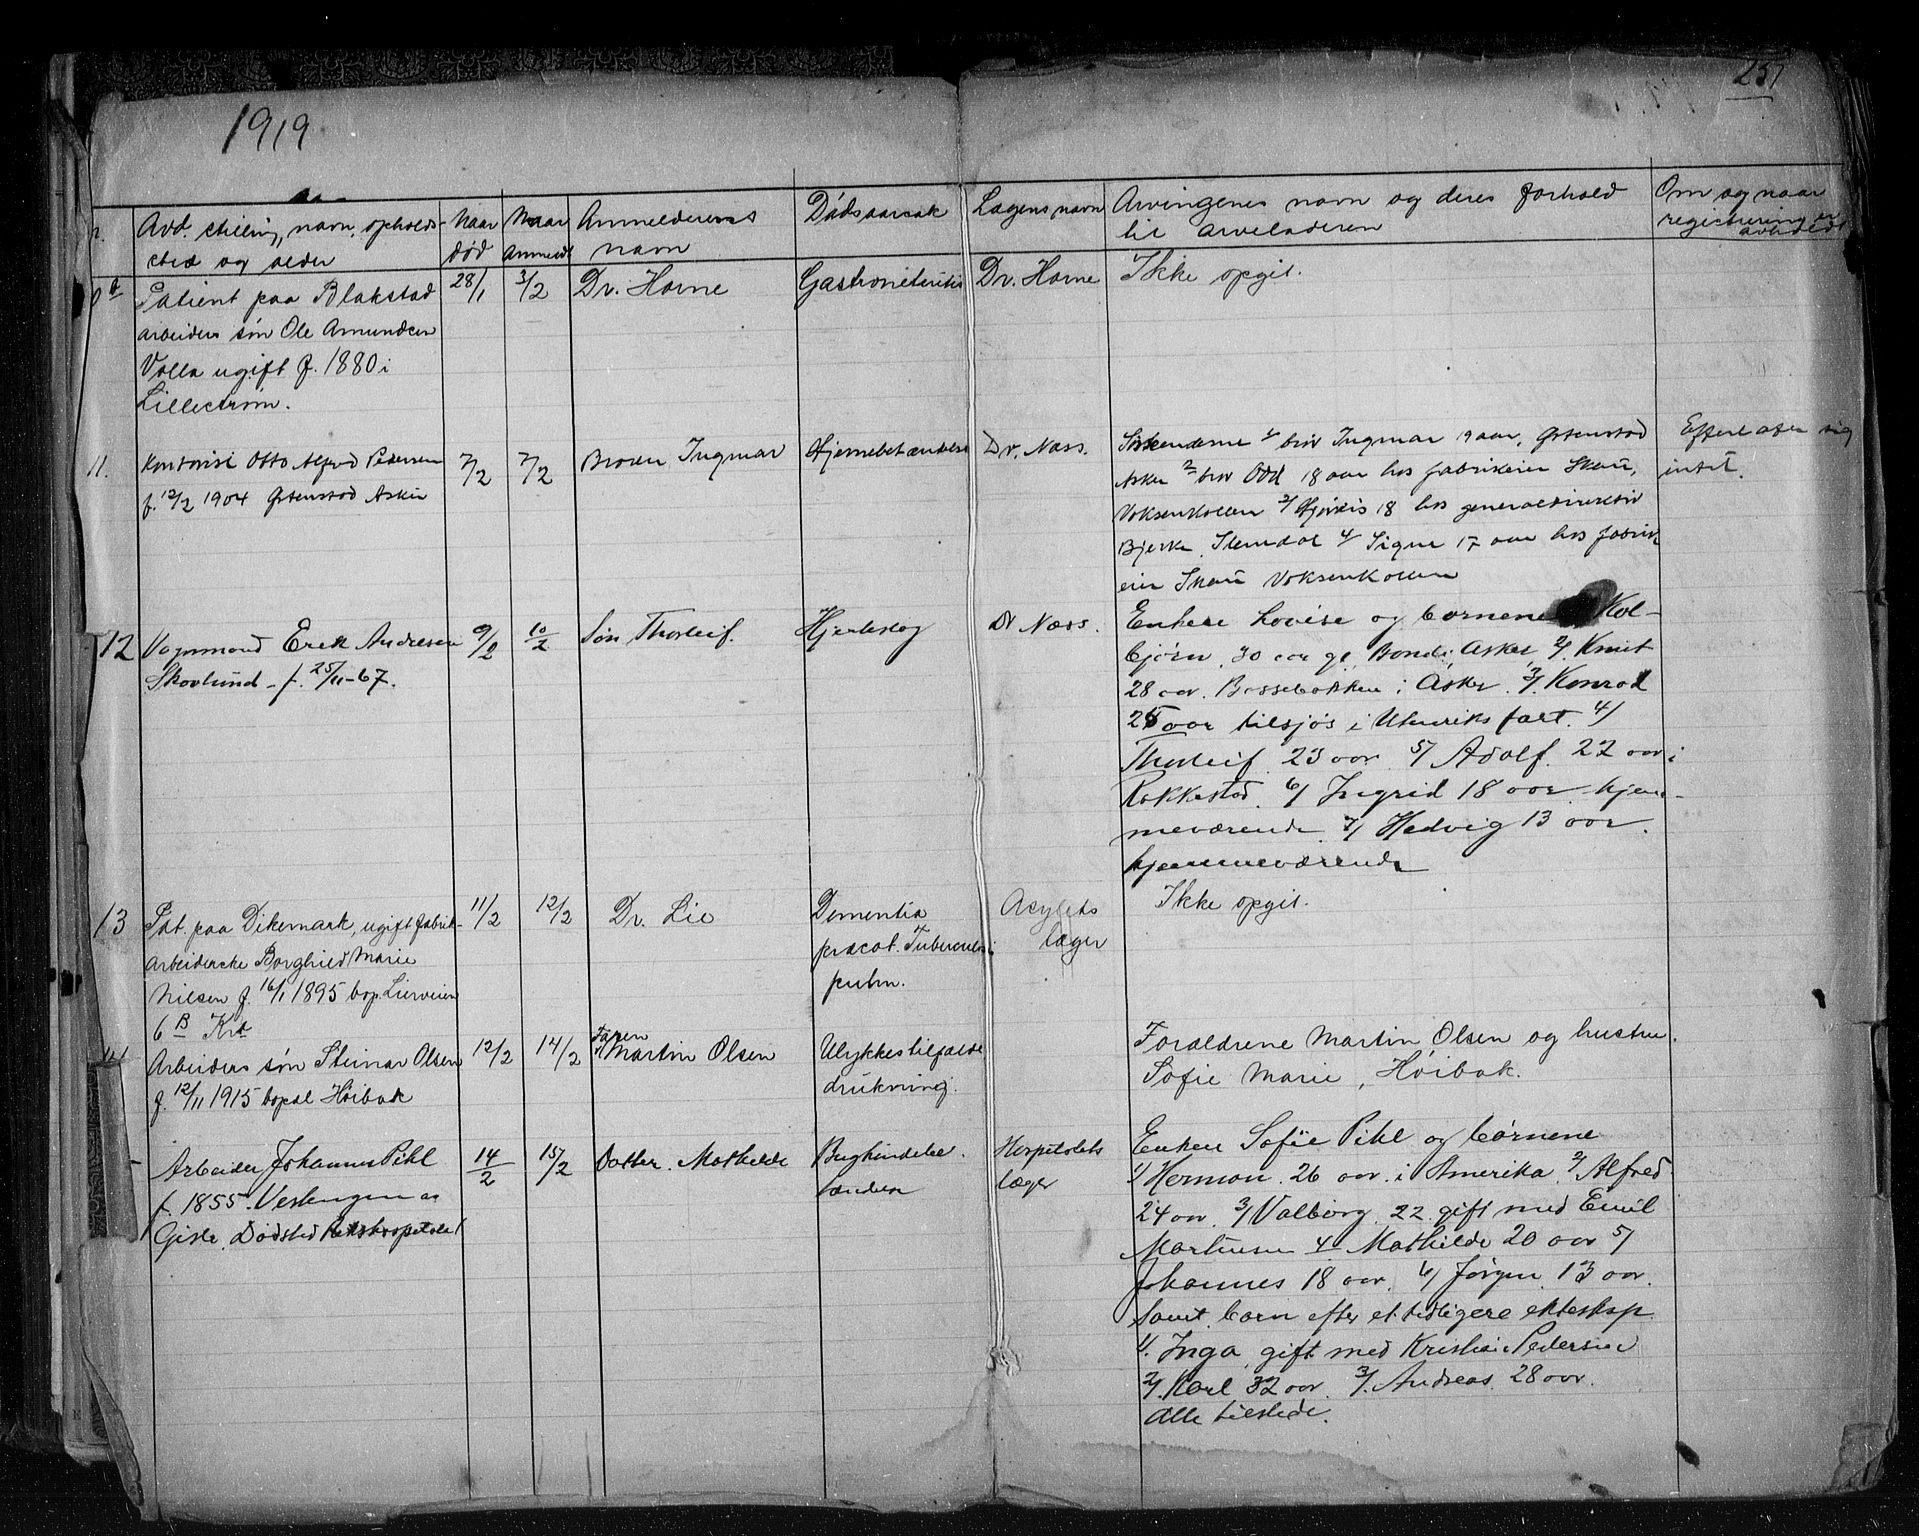 1919
251
Avd. stilling, navn, opholds-
sted og alder
Naar
død
Naar
Anmeldt
Anmelderens
navn
Dødsaarsak
Lægens navn
Arvingenes navn og deres forhold
til arveladeren
Om og naar
registrering er
avholdt
Patient paa Blakstad
arbeiders søn Ole Amundsen
Valla ugift f. 1880 i
Lillestrøm.
28/1
3/2
Dr. Horne
Dr. Horne
Ikke opgit.
11.
Kontorist Otto Alfred Pedersen
f. 12/2 1904 Østenstad Asker
7/2
7/2
Broren Ingmar
Hjernebetændelse
Dr. Næss.
Søskenderne 1/ bror Ingmar 19 aar, Østenstad
Asker 2/ bror Odd 18 aar hos fabrikeier Skau,
Voksenkollen 3/ Hjørdis 18 hos generaldirektør
Bjerke, Slemdal 4/ Signe 17 aar hos fabrik
eier Skau Voksenkollen
Efterlater sig
intet.
12
Vognmand Erik Andresen
Skovlund - f. 25/11-67.
9/2
10/2
Søn Thorleif.
Hjerteslag
Dr Næss.
Enken Lovise og børnene Kol-
bjørn, 30 aar g. Bondi Asker 2/. Knut
28 aar. Bassebakken i Asker. 3/. Konrad
25 aar tilsjøs i Utenriksfart. 4/
Thorleif 23 aar 5/ Adolf. 22 aar i
Rakkestad. 6/ Ingrid 18 aar hjem-
meværende 7/ Hedvig 13 aar.
hjemmeværende
13
Pat. paa Dikemark, ugift fabrik-
arbeiderske Borghild Marie
Nilsen f. 16/1 1895 bop. Lierveien
6 B Kra
11/2
12/2
Dr. Lie
Dementia
præcox. Tuberculosi
pulm.
Asylets
læger
Ikke opgit.
14
Arbeiders søn Steinar Olsen
f. 12/11 1915 bopæl Høibak
12/2
14/2
Faren
Martin Olsen
Ulykkestilfælde
drukning.
Forældrene Martin Olsen og hustru
Sofie Marie, Høibak.
Arbeider Johannes Pihl
f. 1855. Vestengen
Gisle. Dødsted Rikshospitalet
14/2
15/2
Datter. Mathilde
Hospitalets
læger
Enken Sofie Pihl og børnene
1/ Herman. 26 aar. i Amerika. 2/ Alfred
24 aar. 3/ Valborg. 22 gift med Emil
Martinsen 4/ Mathilde 20 aar 5/
Johannes 18 aar. 6/ Jørgen. 13 aar.
Samt børn efter et tidligere ekteskap
1/. Inga, gift med Kristian Pedersen
2/. Karl 32 aar. 3/. Andreas. 28 aar.
Alle tilstede.